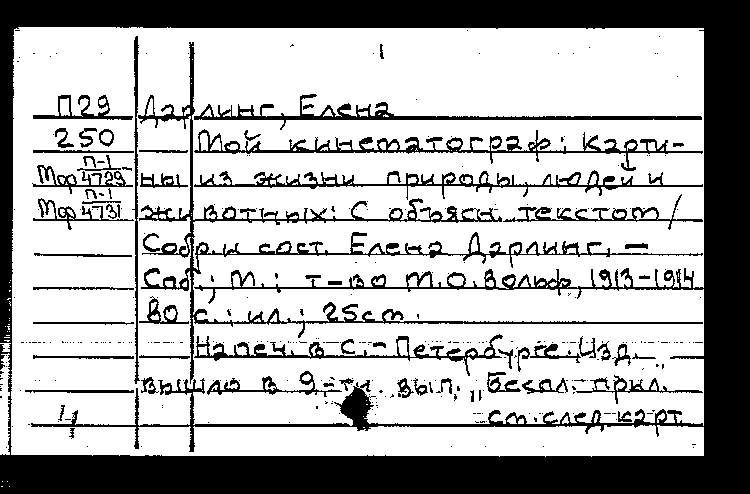 1
П29 Дарлинг, Елена
250 Мой кинематограф: Карти-
Мор П-1/4729 ны из жизни природы, людей и
Мор П-1/4731 животных: С объясн. текстом /
Собр. и сост. Елена Дарлинг. —
Спб.; М.: т-во М.О. Вольф, 1913-1914
80 с.: ил.; 25см.
Напеч. в С.-Петербурге. Изд.
вышло в 9-ти вып. „Беспл. прил."
см. след. карт.